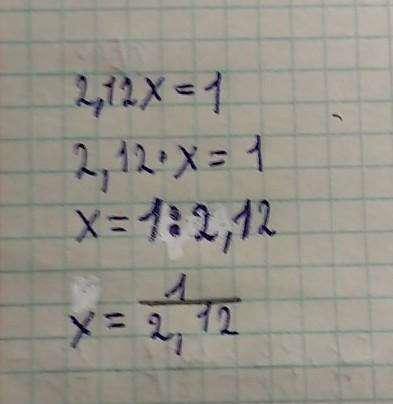 2,12x=1
2,12·x=1
x=1:2,12
x=1/2,12